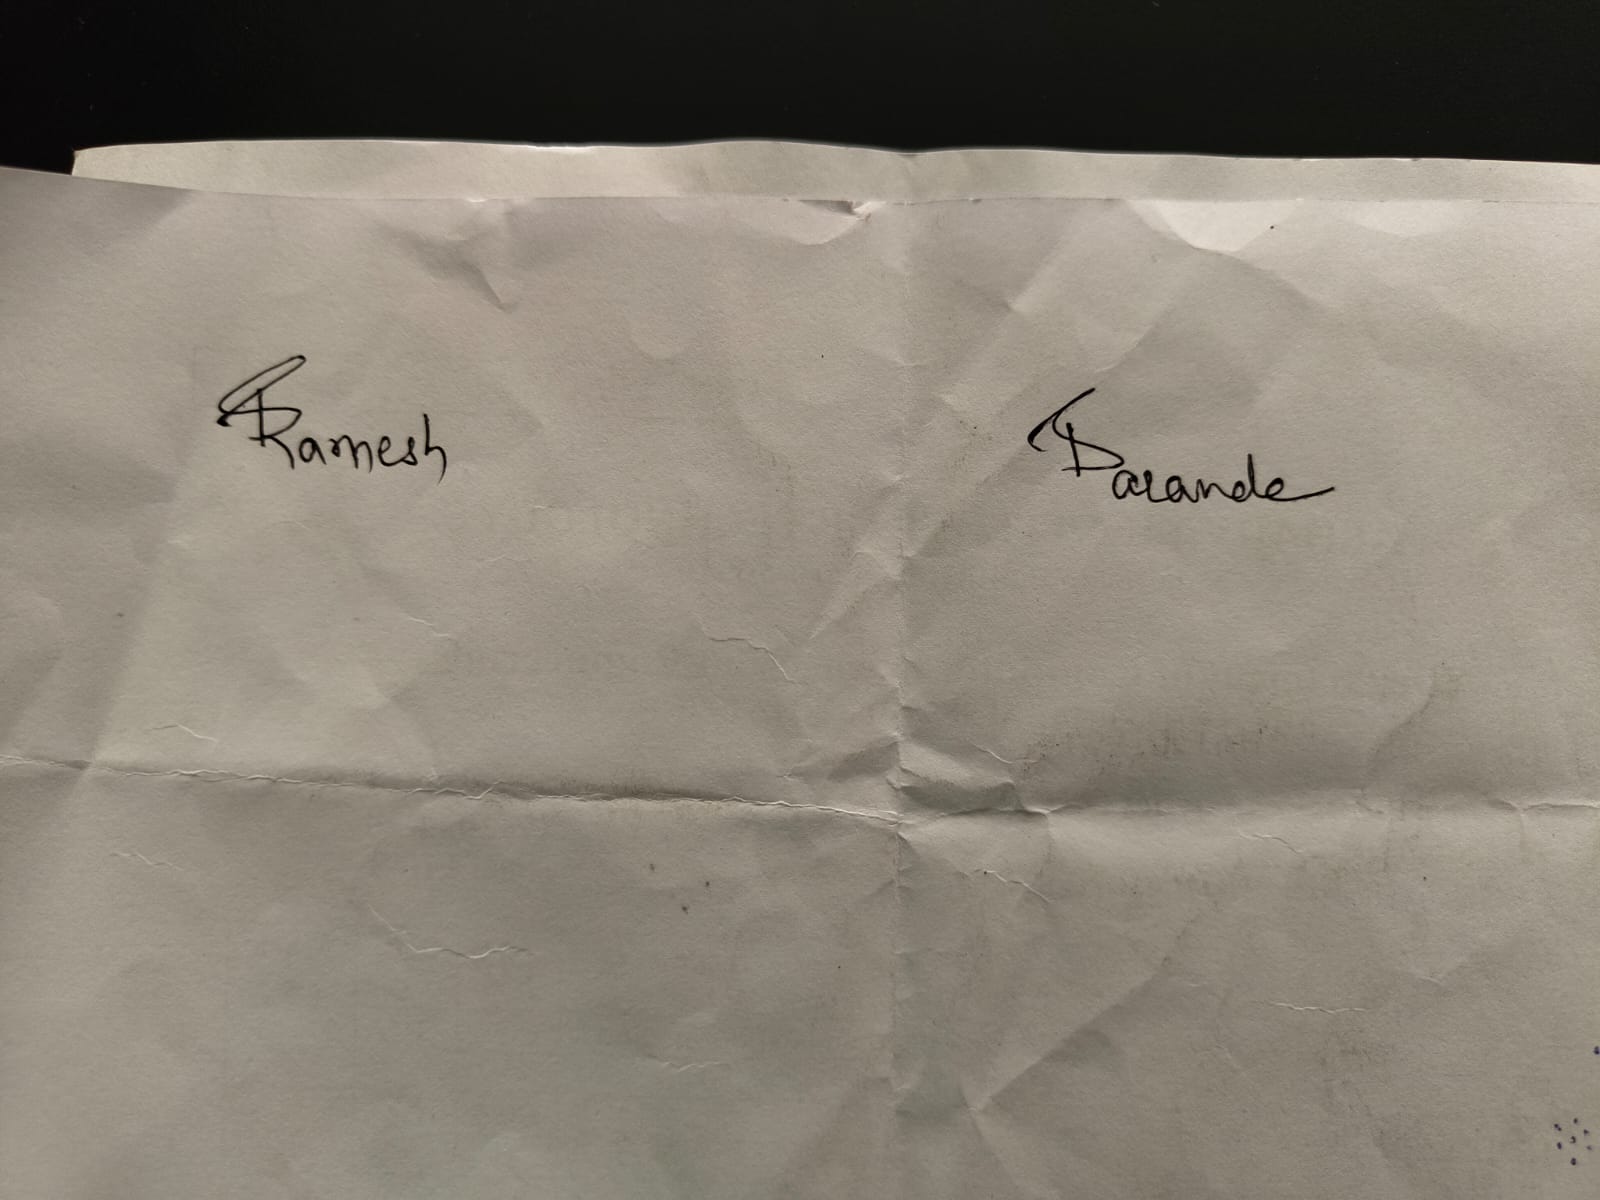 Ramesh Darande